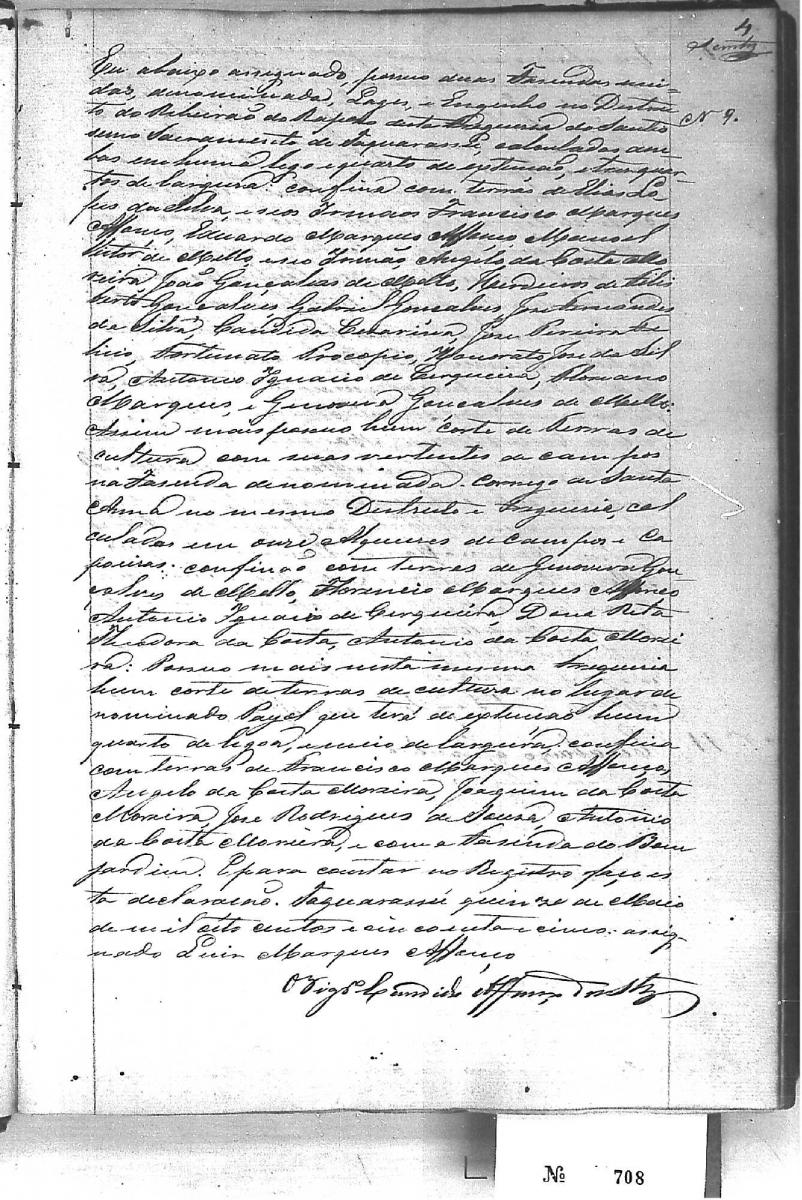 4
Nº 9.
Eu abaixo assignado, possuo duas Fasendas uni-
das, denominada, Lages, e Engenho no Destric
to do Ribeirão do Raposo desta Freguesia do Santis
simo Sacramento de Taquarassú, calculadas am
bas em huma legoa e quarto de extenção, e tres quar-
tos de largura: confina com terras de Elias Lo
pes da Silva, e seos Irmãos Francisco Marques
Affonço, Eduardo Marques Affonço, Manoel
Victor de Mello e seo Irmão Angelo da Costa Mo
reira, João Gonçalves de Mello, Herdeiros de Feles
berto Gonçalves, Gabriel Gonsalves, Jose Fernandes
da Silva, Candida Cesarina, Jose Pereira
Fortunato Procopio, Honorato Jose da Sil
va, Antonio Ignacio de Cerqueira, Floriano
Marques, e Genoveva Gonçalves de Mello.
Assim mais possuo hum córte de terras de
cultura com suas vertentes de campos
na Fasenda denominada Corrego de Santa
Anna no mesmo Destricto e Freguesia, cal
culadas em onze Alqueires de Campos e Ca
poeiras: confinão com terras de Genoveva Gon
çalves de Mello, Florencio Marques Affonço
Antonio Ignacio de Cerqueira, Dona Rita
Theodora da Costa, Antonio da Costa Morei
ra: Possuo mais nesta mesma Freguesia
hum corte de terras de cultura no lugar de
nominado Payol que terá de extenção hum
quarto de legoa, e meio de largura: confina
com terras de Francisco Marques Affonço,
Angelo da Costa Moreira, Joaquim da Costa
Moreira, Jose Rodrigues de Sousa, Antonio
da Costa Moreira, e com a Fasenda do Bom
jardim. E para constar no Registro faço es
ta declaração. Taquarassú quinze de Maio
de mil oito centos e cincoenta e cinco: assig-
nado Luis Marques Affonço
O Vigrº Candido Affonço
Nº 708